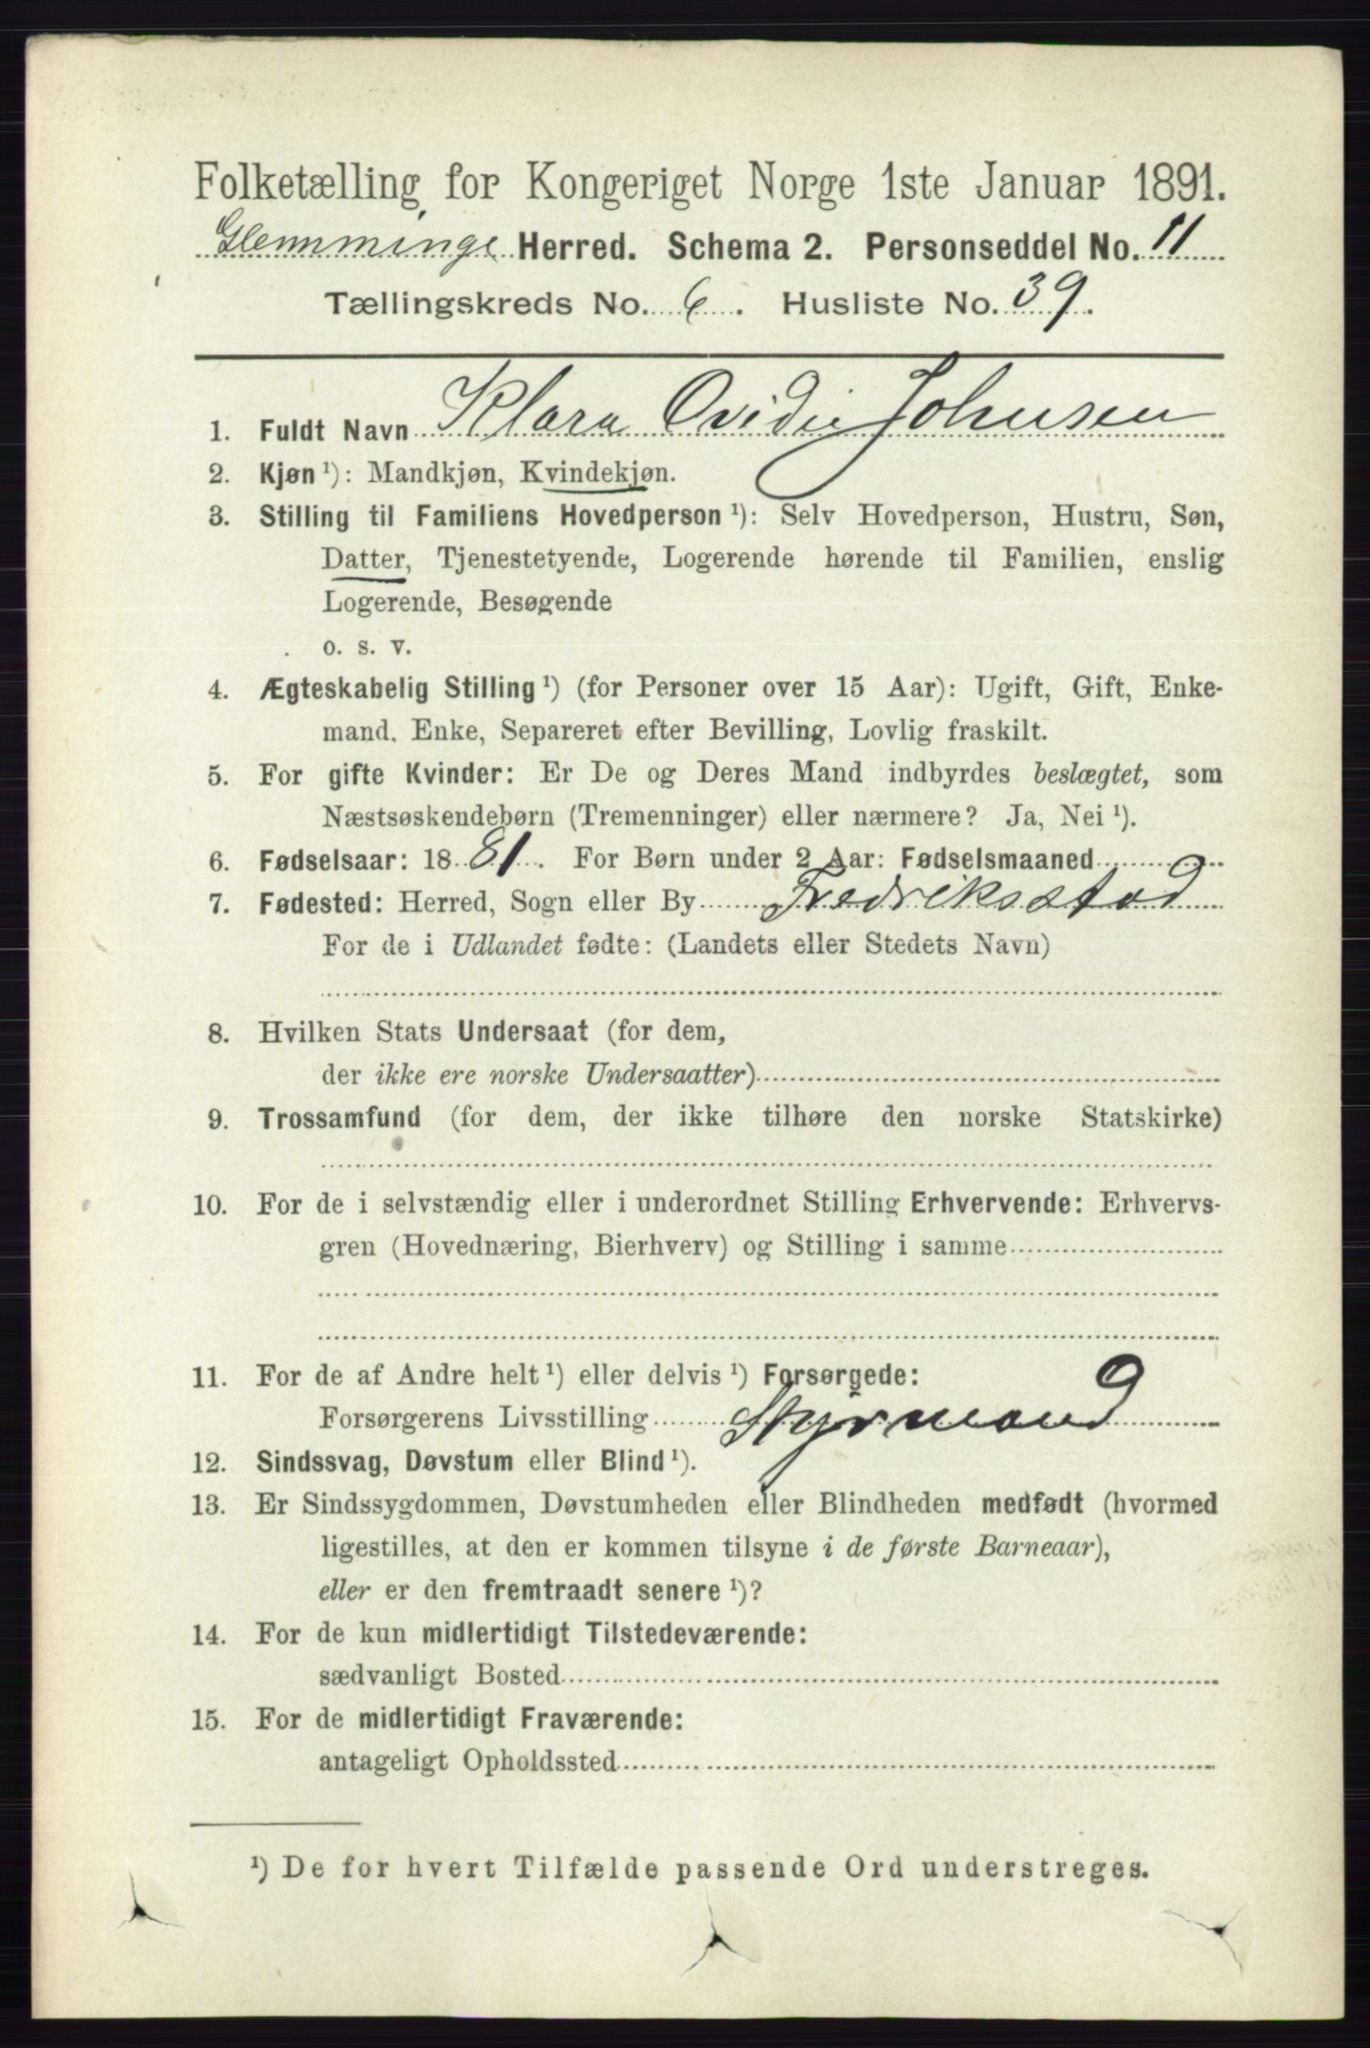 Folketælling for Kongeriget Norge 1ste Januar 1891.
Glemminge Herred. Schema 2. Personseddel No. 11
Tællingskreds No. 6. Husliste No. 39.
1. Fuldt Navn Klara Ovidie Johnsen
2. Kjøn ¹): Mandkjøn, Kvindekjøn.
3. Stilling til Familiens Hovedperson ¹): Selv Hovedperson, Hustru, Søn,
Datter, Tjenestetyende, Logerende hørende til Familien, enslig
Logerende, Besøgende
o. s. v.
4. Ægteskabelig Stilling ¹) (for Personer over 15 Aar): Ugift, Gift, Enke-
mand, Enke, Separeret efter Bevilling, Lovlig fraskilt.
5. For gifte Kvinder: Er De og Deres Mand indbyrdes beslægtet, som
Næstsøskendebørn (Tremenninger) eller nærmere? Ja, Nei ¹).
6. Fødselsaar: 1881. For Børn under 2 Aar: Fødselsmaaned
7. Fødested: Herred, Sogn eller By Fredriksstad
For de i Udlandet fødte: (Landets eller Stedets Navn)
8. Hvilken Stats Undersaat (for dem,
der ikke ere norske Undersaatter)
9. Trossamfund (for dem, der ikke tilhøre den norske Statskirke)
10. For de i selvstændig eller i underordnet Stilling Erhvervende: Erhvervs-
gren (Hovednæring, Bierhverv) og Stilling i samme
11. For de af Andre helt ¹) eller delvis ¹) Forsørgede:
Forsørgerens Livsstilling Styrmand
12. Sindssvag, Døvstum eller Blind ¹).
13. Er Sindssygdommen, Døvstumheden eller Blindheden medfødt (hvormed
ligestilles, at den er kommen tilsyne i de første Barneaar),
eller er den fremtraadt senere ¹)?
14. For de kun midlertidigt Tilstedeværende:
sædvanligt Bosted
15. For de midlertidigt Fraværende:
antageligt Opholdssted
¹) De for hvert Tilfælde passende Ord understreges.